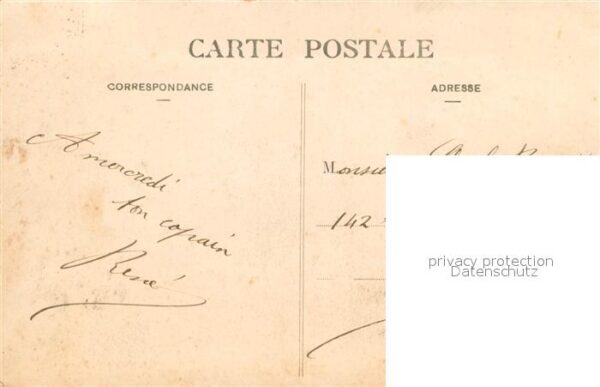 CARTE POSTALE
CORRESPONDANCE
ADRESSE
A mercredi
ton copain
René
Monsie
142
privacy protection
Datenschutz